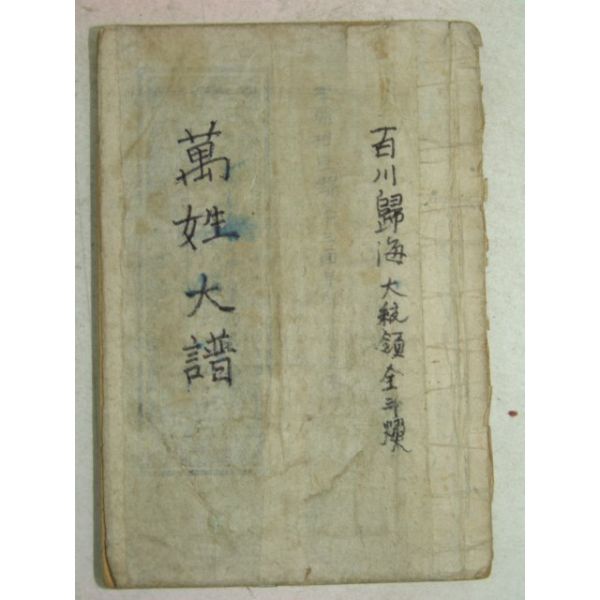 百川歸海 大統領全斗煥
萬姓大譜